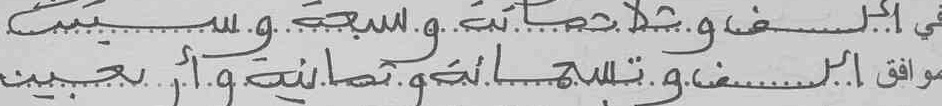 في ألف و ثلاثمائة و سبعة و ستين
موافق ألف و تسعمائة و ثمانية و أربعين